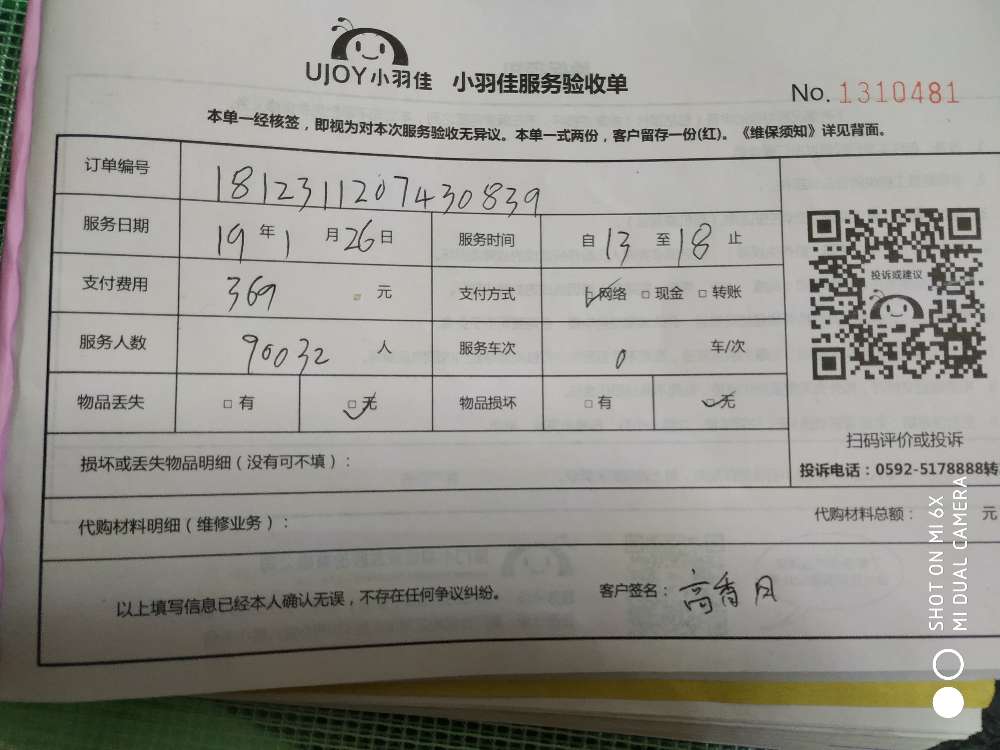 UJOY小羽佳 小羽佳服务验收单
No. 1310481
本单一经核签，即视为对本次服务验收无异议。本单一式两份，客户留存一份(红)。《维保须知》详见背面。
订单编号 1812311207430839
服务日期 19 年 1 月 26 日 服务时间 自 13 至 18 止
支付费用 369 元 支付方式 ☑网络 □现金 □转账
服务人数 90032 人 服务车次 0 车/次
物品丢失 □有 ☑无 物品损坏 □有 ☑无
投诉或建议
扫码评价或投诉
投诉电话：0592-5178888转
损坏或丢失物品明细（没有可不填）：
代购材料明细（维修业务）： 代购材料总额： 元
以上填写信息已经本人确认无误，不存在任何争议纠纷。 客户签名：高香月
SHOT ON MI 6X
MI DUAL CAMERA